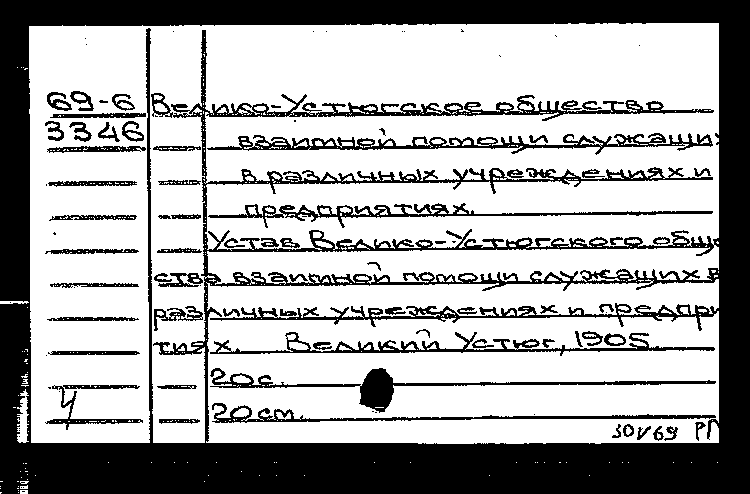 69-6 Велико-Устюгское общество
3346 взаимной помощи служащих
в различных учреждениях и
предприятиях.
Устав Велико-Устюгского обще
ства взаимной помощи служащих в
различных учреждениях и предпри
тиях. Великий Устюг, 1905.
20 с.
Ч 20 см.
30V69 РП